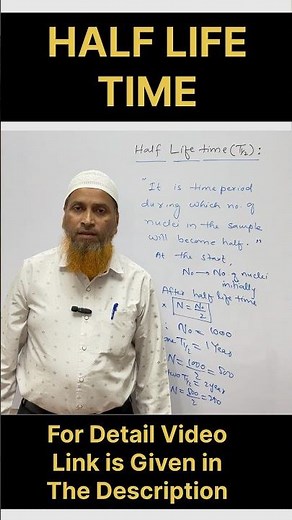 HALF LIFE
TIME
Half Life time (T½) :
"It is time period
during which no. of
nuclei in the sample
will become half."
At the start,
No → No of nuclei
initially
After half life time
N = No/2
∴ No = 1000
one T½ = 1 Year
N = 1000/2 = 500
two T½ = 2 years
N = 500/2 = 250
For Detail Video
Link is Given in
The Description